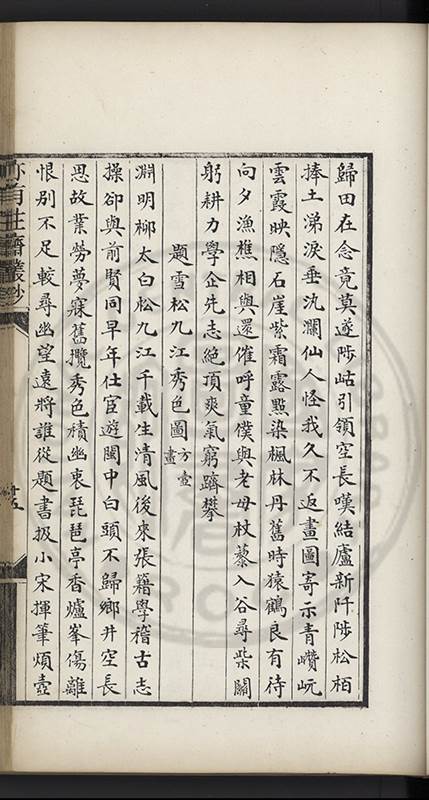 歸田在念竟莫遂陟岵引領空長嘆結廬新阡陟松栢
捧土涕淚垂汍瀾仙人怪我久不返畫圖寄示青巑岏
雲霞映隱石崖紫霜露點染楓林丹舊時猿鶴良有待
向夕漁樵相與還催呼童僕與老母杖藜入谷尋柴關
躬耕力學企先志絶頂爽氣窮躋攀
題雪松九江秀色圖方壺畫
淵明柳太白松九江千載生清風後來張籍學稽古志
操卻與前賢同早年仕宦遊閩中白頭不歸鄉井空長
思故業勞夢寐舊攬秀色積幽衷琵琶亭香爐峯傷離
恨別不足較尋幽望遠將誰從題書扱小宋揮筆煩壺
亦有生齋叢鈔